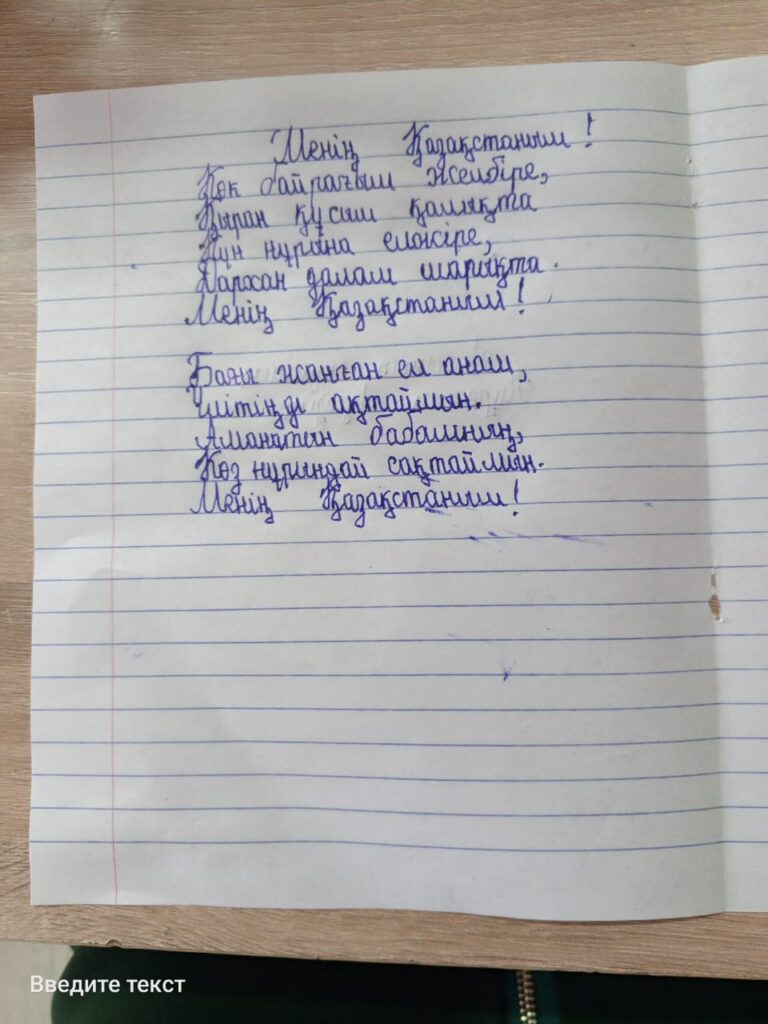 Менің Қазақстаным!
Көк байрағым желбіре,
Қыран құсым қалықта
Күн нұрына елжіре,
Дархан далам шарықта.
Менің Қазақстаным!
Бағы жанған ел анам,
Үмітіңді ақтаймын.
Аманатын бабамның,
Көз нұрындай сақтаймын.
Менің Қазақстаным!
Введите текст